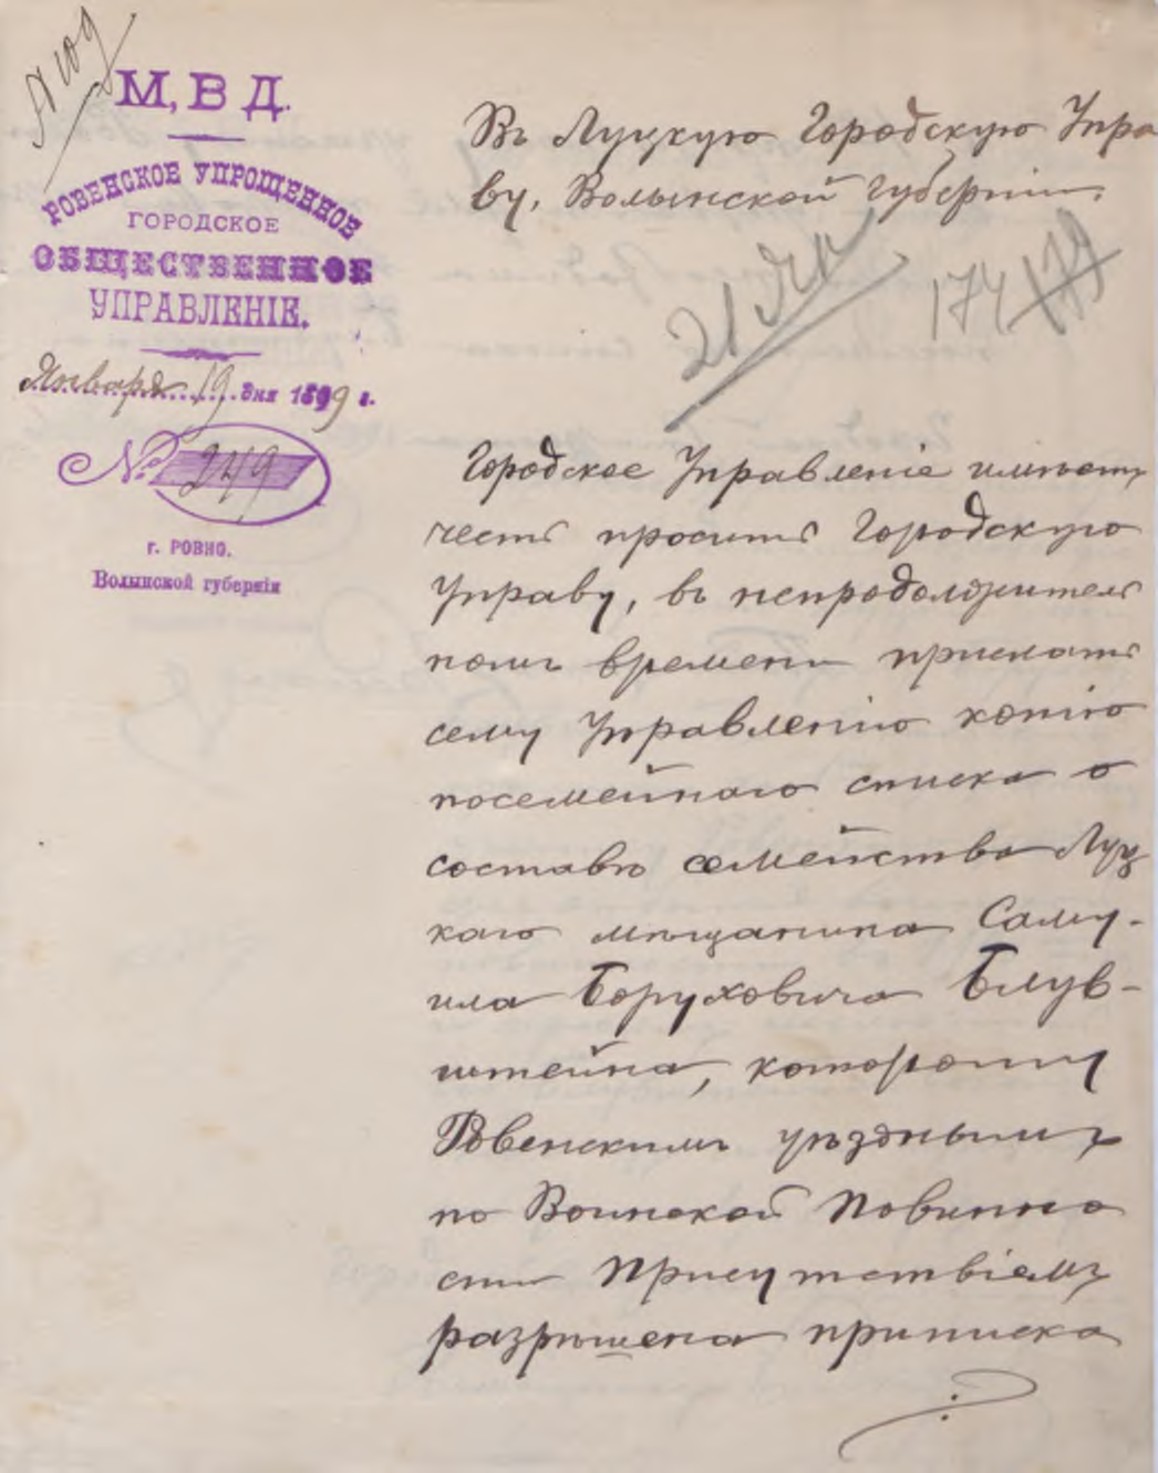 М, В Д.
РОВЕНСКОЕ УПРОЩЕННОЕ
ГОРОДСКОЕ
ОБЩЕСТВЕННОЕ
УПРАВЛЕНІЕ.
Января 19 дня 1899 г.
№ 249
г. РОВНО.
Волынской губерніи
Въ Луцкую Городскую Упра
ву, Волынской губерніи.
21 Ян
174
179
Городское Управленіе имѣетъ
честь просить Городскую
Управу, въ непродолжитель
номъ времени прислать
сему Управленію копію
посемейнаго списка о
составѣ семейства Луц
каго мѣщанина Саму-
ила Боруховича Блув-
штейна, которому
Ровенскимъ уѣзднымъ
по Воинской Повинно
сти Присутствіемъ
разрѣшена приписка